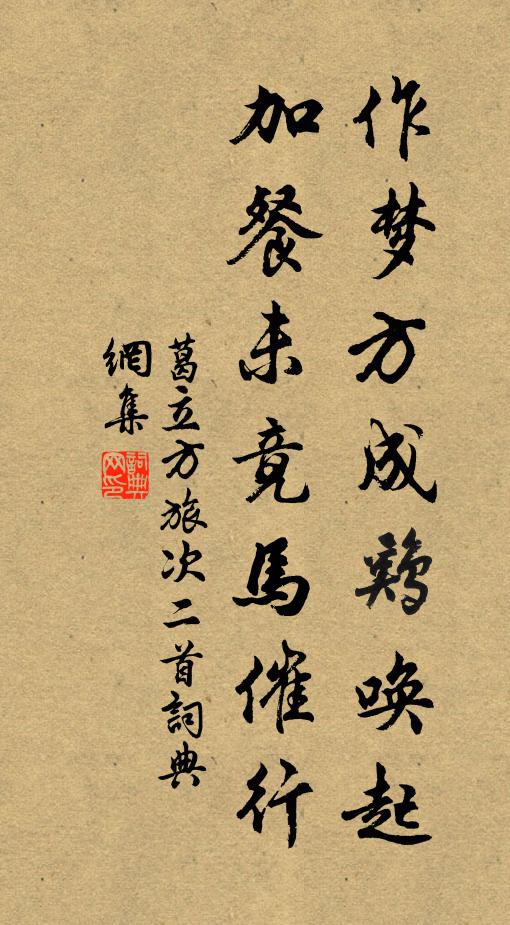 作梦方成鷄唤起
加餐未竟馬催行
葛立方旅次二首詞典
網集
詞典网印